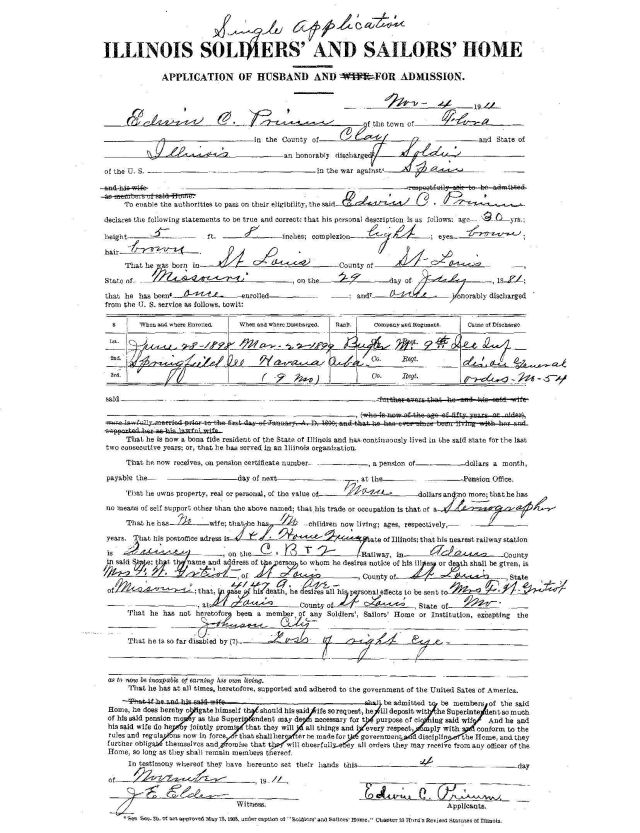 Single Application
ILLINOIS SOLDIERS' AND SAILORS' HOME
APPLICATION OF HUSBAND AND WIFE FOR ADMISSION.
Nov- 4 1911
Edwin C. Primm of the town of Flora
in the County of Clay and State of
Illinois an honorably discharged Soldier
of the U. S. in the war against Spain
and his wife respectfully ask to be admitted
as members of said Home.
To enable the authorities to pass on their eligibility, the said Edwin C. Primm
declares the following statements to be true and correct: that his personal description is as follows: age 30 yrs.;
height 5 ft. 8 inches; complexion light; eyes brown;
hair brown
That he was born in St Louis County of St-Louis
State of Missouri, on the 29 day of , 1881;
that he has been once enrolled ; and once honorably discharged
from the U. S. service as follows, towit:
When and where Enrolled. When and where Discharged. Rank. Company and Regiment. Cause of Discharge.
1st. June 28-1898 Mar-22-1899 Bugler 9th Inf
2nd. Springfield Havana Cuba Co. Regt. General
3rd. (9 mo) Co. Regt. orders-No-54
said further avers that he and his said wife
(who is now of the age of fifty years or older),
were lawfully married prior to the first day of January, A. D. 1890, and that he has ever since been living with her and
supported her as his lawful wife.
That he is now a bona fide resident of the State of Illinois and has continuously lived in the said state for the last
two consecutive years; or, that he has served in an Illinois organization.
That he now receives, on pension certificate number , a pension of dollars a month,
payable the day of next , at the Pension Office.
That he owns property, real or personal, of the value of None dollars and no more; that he has
no means of self support other than the above named; that his trade or occupation is that of a Stenographer
That he has No wife; that he has No children now living; ages, respectively,
years. That his postoffice adress is S & S. Home Quincy State of Illinois; that his nearest railway station
is Quincy, on the C. B & Q Railway, in Adams County
in said State; that the name and address of the person to whom he desires notice of his illness or death shall be given, is
Mrs F. N. of St Louis, County of St Louis, State
4147 A.
of Missouri; that, in case of his death, he desires all his personal effects to be sent to Mrs F. N.
, at St Louis County of St Louis, State of Mo
That he has not heretofore been a member of any Soldiers', Sailors' Home or Institution, excepting the
Johnson City
That he is so far disabled by (?) Loss of right Eye.
as to now be incapable of earning his own living.
That he has at all times, heretofore, supported and adhered to the government of the United States of America.
That if he and his said wife shall be admitted to be members of the said
Home, he does hereby obligate himself that should his said wife so request, he will deposit with the Superintendent so much
of his said pension money as the Superintendent may deem necessary for the purpose of clothing said wife. And he and
his said wife do hereby jointly promise that they will in all things and in every respect, comply with and conform to the
rules and regulations now in force, or that shall hereafter be made for the government and discipline of the Home, and they
further obligate themselves and promise that they will cheerfully obey all orders they may receive from any officer of the
Home, so long as they shall remain members thereof.
In testimony whereof they have hereunto set their hands this 4 day
of November, 1911
J E Elder Edwin C. Primm
Witness. Applicants.
* See Sec. 3b, of act approved May 13, 1905, under caption of "Soldiers' and Sailors' Home." Chapter 23 Hurd's Revised Statutes of Illinois.